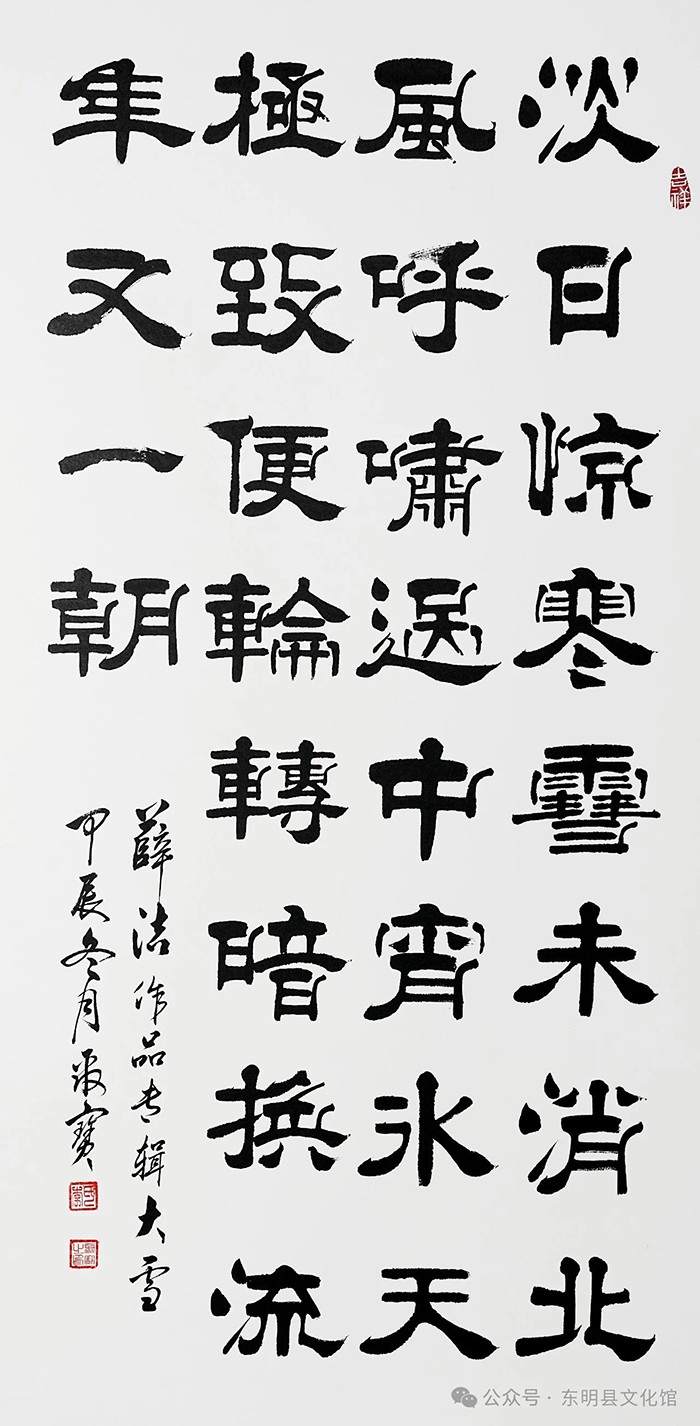 淡日惊寒雪未消北
風呼嘯送中宵冰天
極致便輪轉暗换流
年又一朝
薛洁作品专辑大雪
甲辰冬月
寶
吉祥
公众号·东明县文化馆